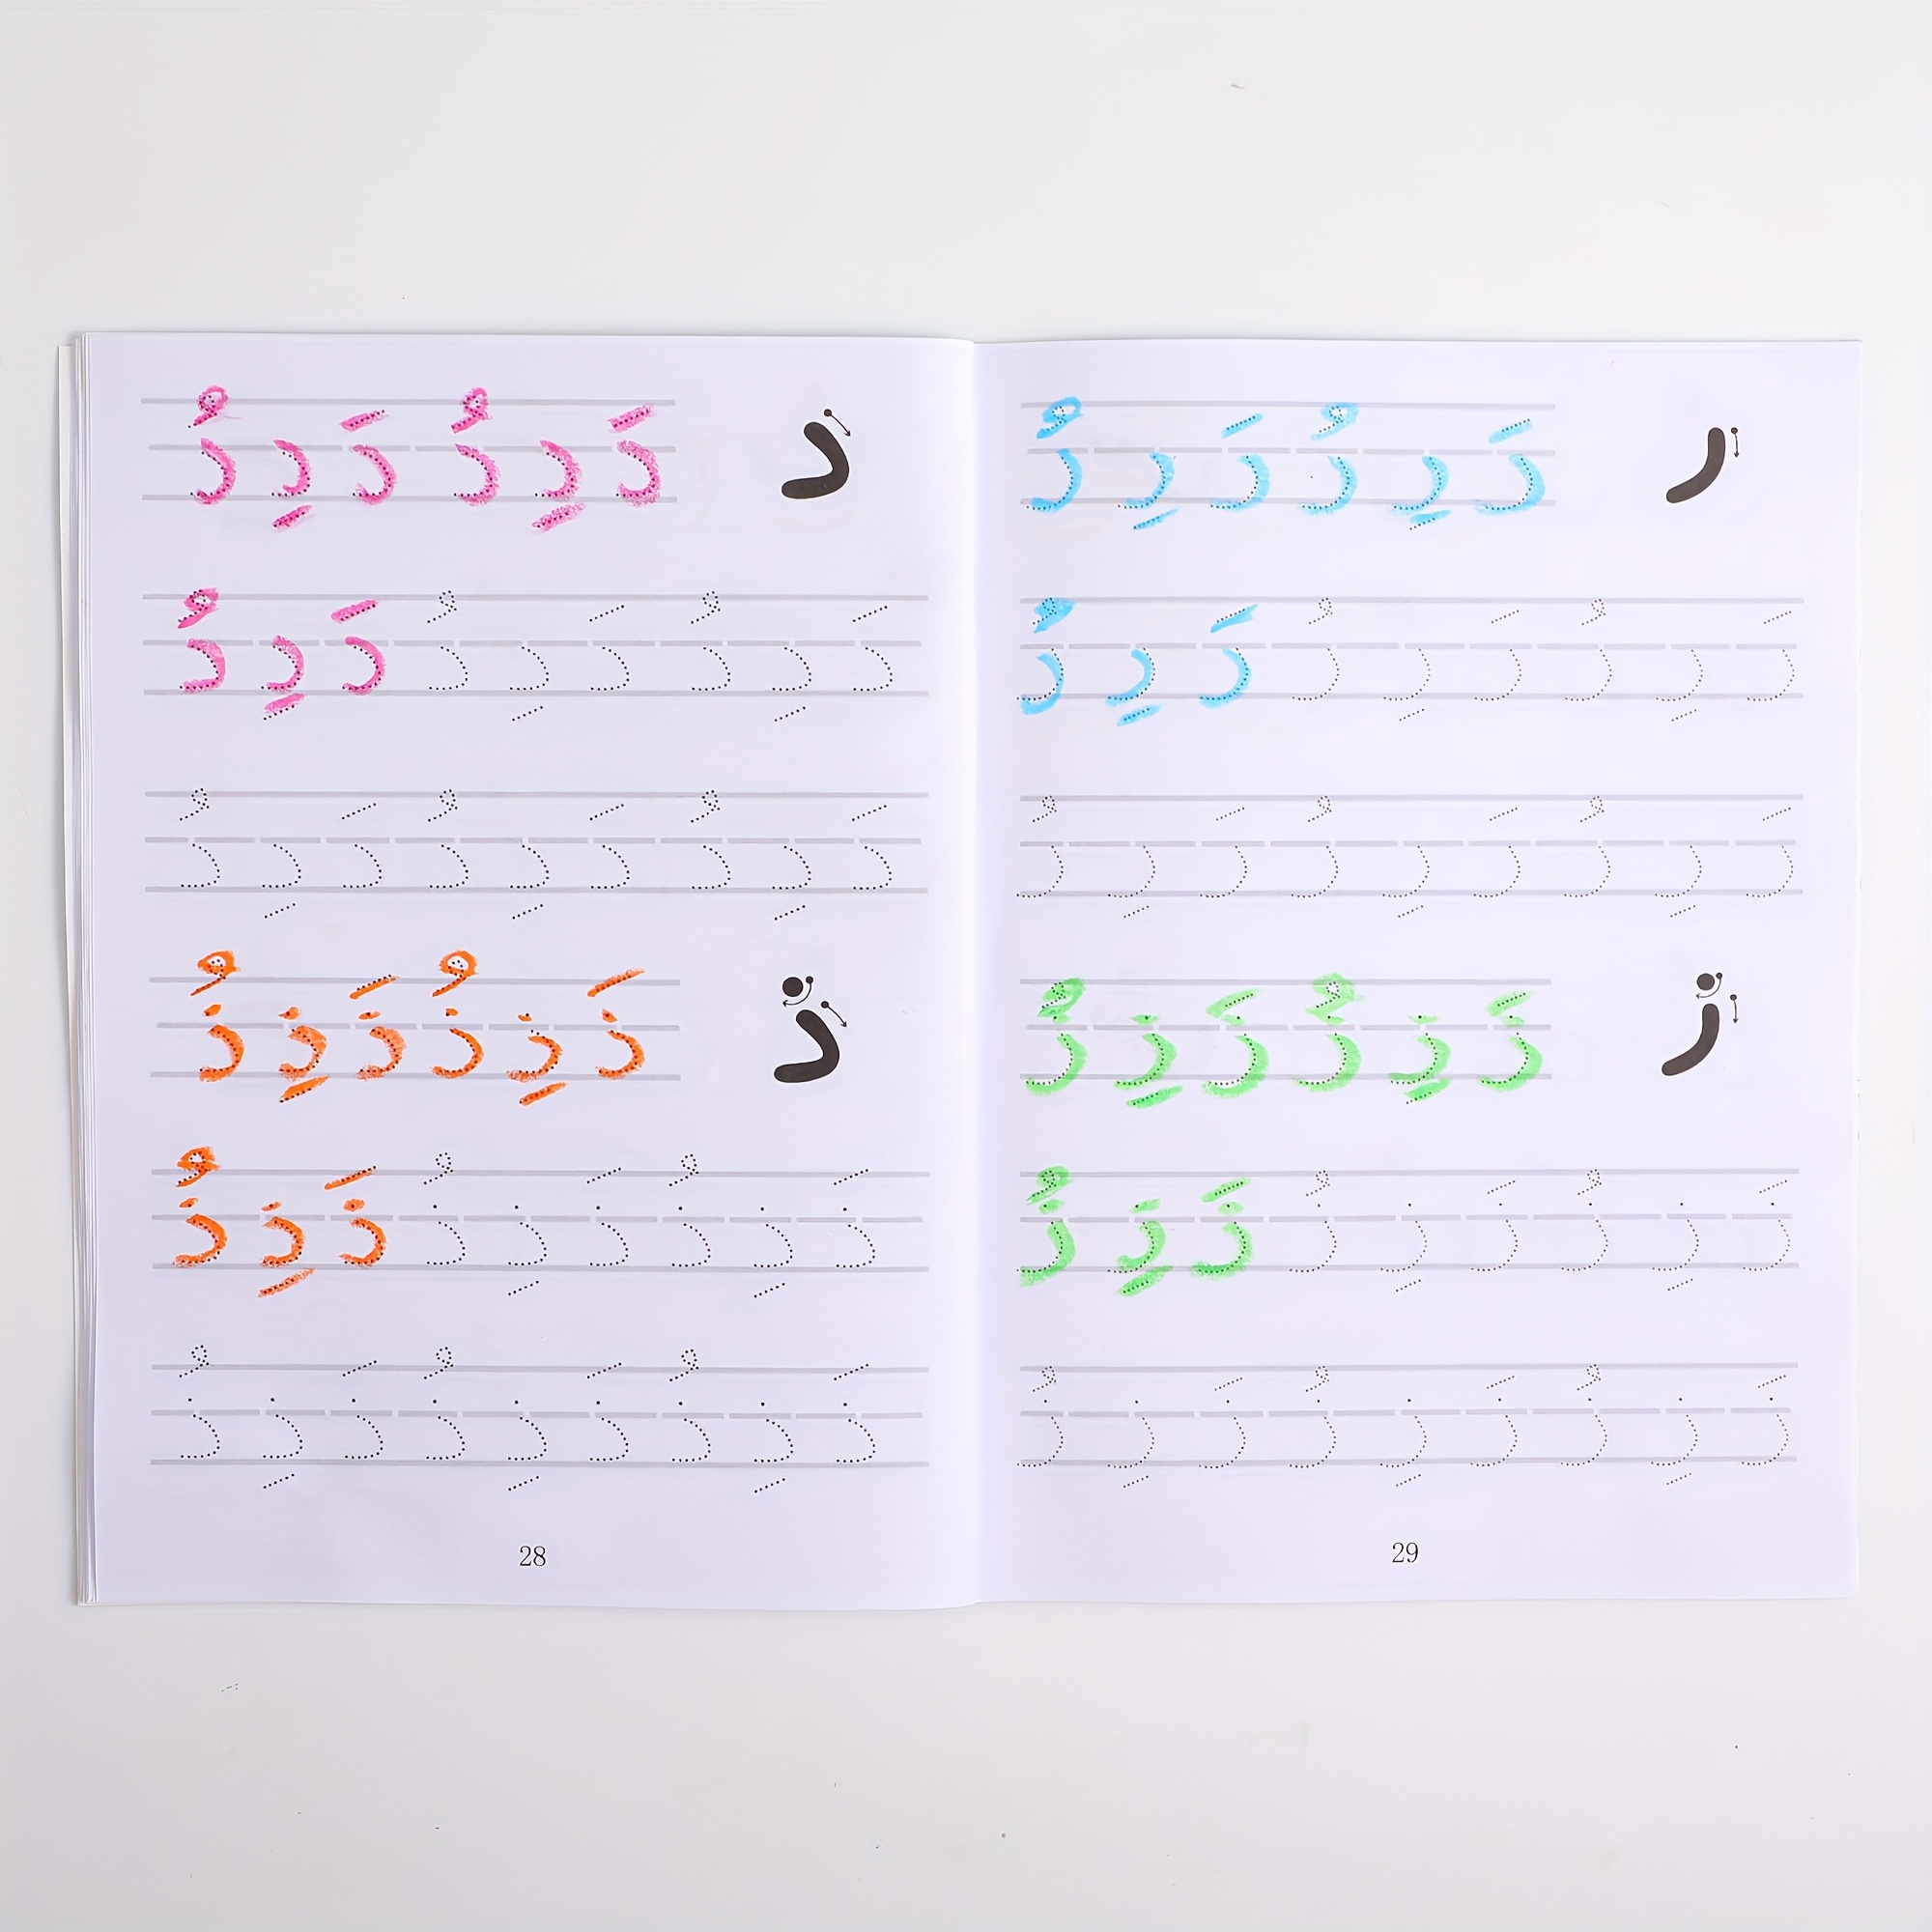 د دَ دِ دُ دَ دِ دُ
دَ دِ دُ دَ دِ دُ دَ دِ دُ
دَ دِ دُ دَ دِ دُ دَ دِ دُ
ذ ذَ ذِ ذُ ذَ ذِ ذُ
ذَ ذِ ذُ ذَ ذِ ذُ ذَ ذِ ذُ
ذَ ذِ ذُ ذَ ذِ ذُ ذَ ذِ ذُ
28
ر رَ رِ رُ رَ رِ رُ
رَ رِ رُ رَ رِ رُ رَ رِ رُ
رَ رِ رُ رَ رِ رُ رَ رِ رُ
ز زَ زِ زُ زَ زِ زُ
زَ زِ زُ زَ زِ زُ زَ زِ زُ
زَ زِ زُ زَ زِ زُ زَ زِ زُ
29